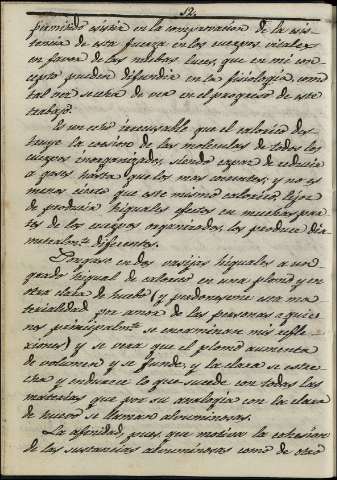 52.
permitido insistir en la comprovacion de la exis-
tencia de esta fuerza en los cuerpos vitales
en favor de las muchas luces, que en mi con-
cepto pueden difundir en la fisiologia, como
tal vez se echará de ver en el progreso de este
trabajo.
Es un echo inescusable que el calorico des-
truye la coesion de las moleculas de todos los
cuerpos inorganizados, siendo capaz de reducir
a gases hasta que los mas concretos; y no es
menos cierto que este mismo calorico, lejos
de producir higuales efectos en muchas par-
tes de los cuerpos organizados, los produce dia-
metralmte diferentes.
Pongase en dos vasijas higuales a un
grado higual de calorico en una plomo y en
otra clara de huebo (y perdonenme esta ma-
terialidad por amor de las personas a quie-
nes principalmte se encaminan mis refle-
xiones) y se vera que el plomo aumenta
de volumen y se funde, y la clara se estre-
cha y endurece lo que sucede con todas las
materias que por su analogia con la clara
de huevo se llaman albuminosas.
La afinidad, pues, que motiva la cohesion
de las sustancias albuminosas como de otro